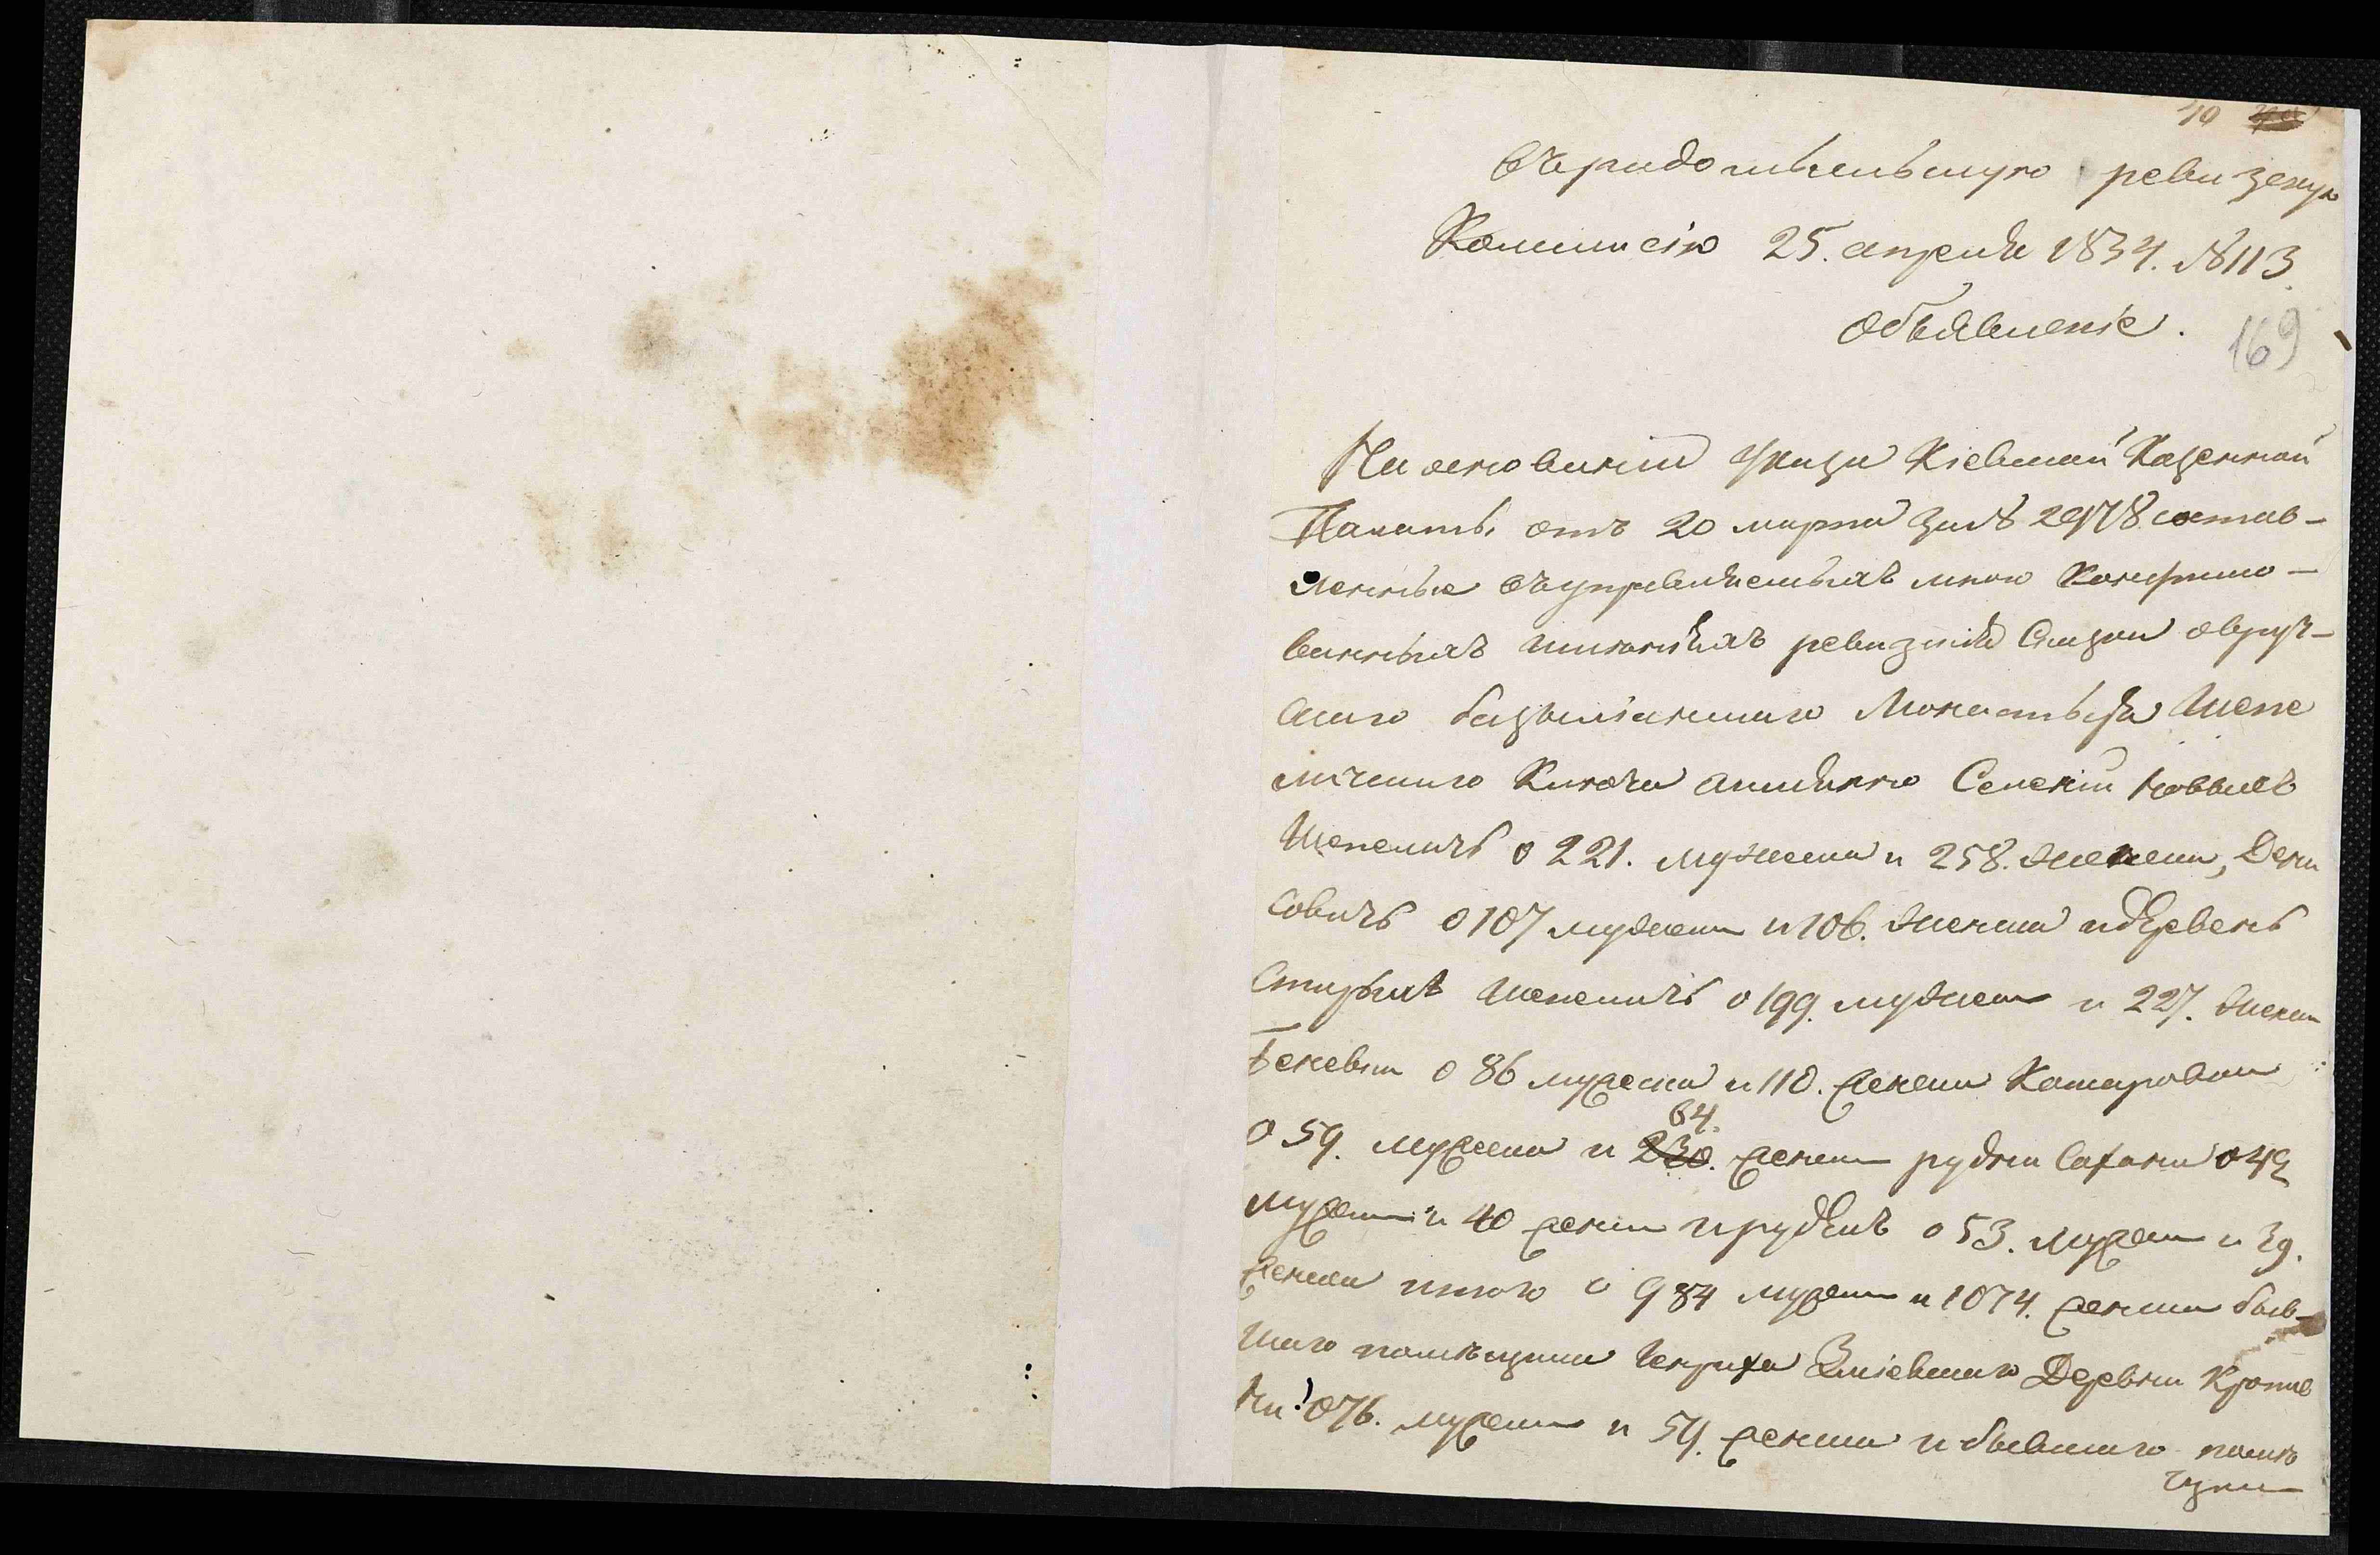 10
Въ радомысльскую ревизскую
Коммисію 25. апреля 1834. №113.
Объявленіе.
169
На основаніи Указа Кіевской Казенной
Палаты отъ 20 марта за № 2978 состав-
ленные въ управляемыхъ мною Конфиско-
ванныхъ имѣніяхъ ревизскія Сказки овруч-
скаго базыліанскаго Монастыря Шепе
личскаго Ключа а имянно Селеній Новыхъ
Шепеличъ о 221. мужеска и 258. женска, Дени
совичъ о 107 мужеска и 106. женска и деревень
Старыхъ Шепеличъ о 199. мужеска и 227. женск
Беневки о 86 мужеска и 110. женска Кашаровки
64.
о 59. мужеска и 230. женска рудни о 49
мужеска и 40 женска и рудекъ о 53. мужеска и 39.
женска итого о 984 мужеска и 1074. женска быв-
шаго помѣщика Генриха Зміевскаго Деревни Кропив
ни о 76. мужеска и 59. женска и бывшаго помѣ
щика